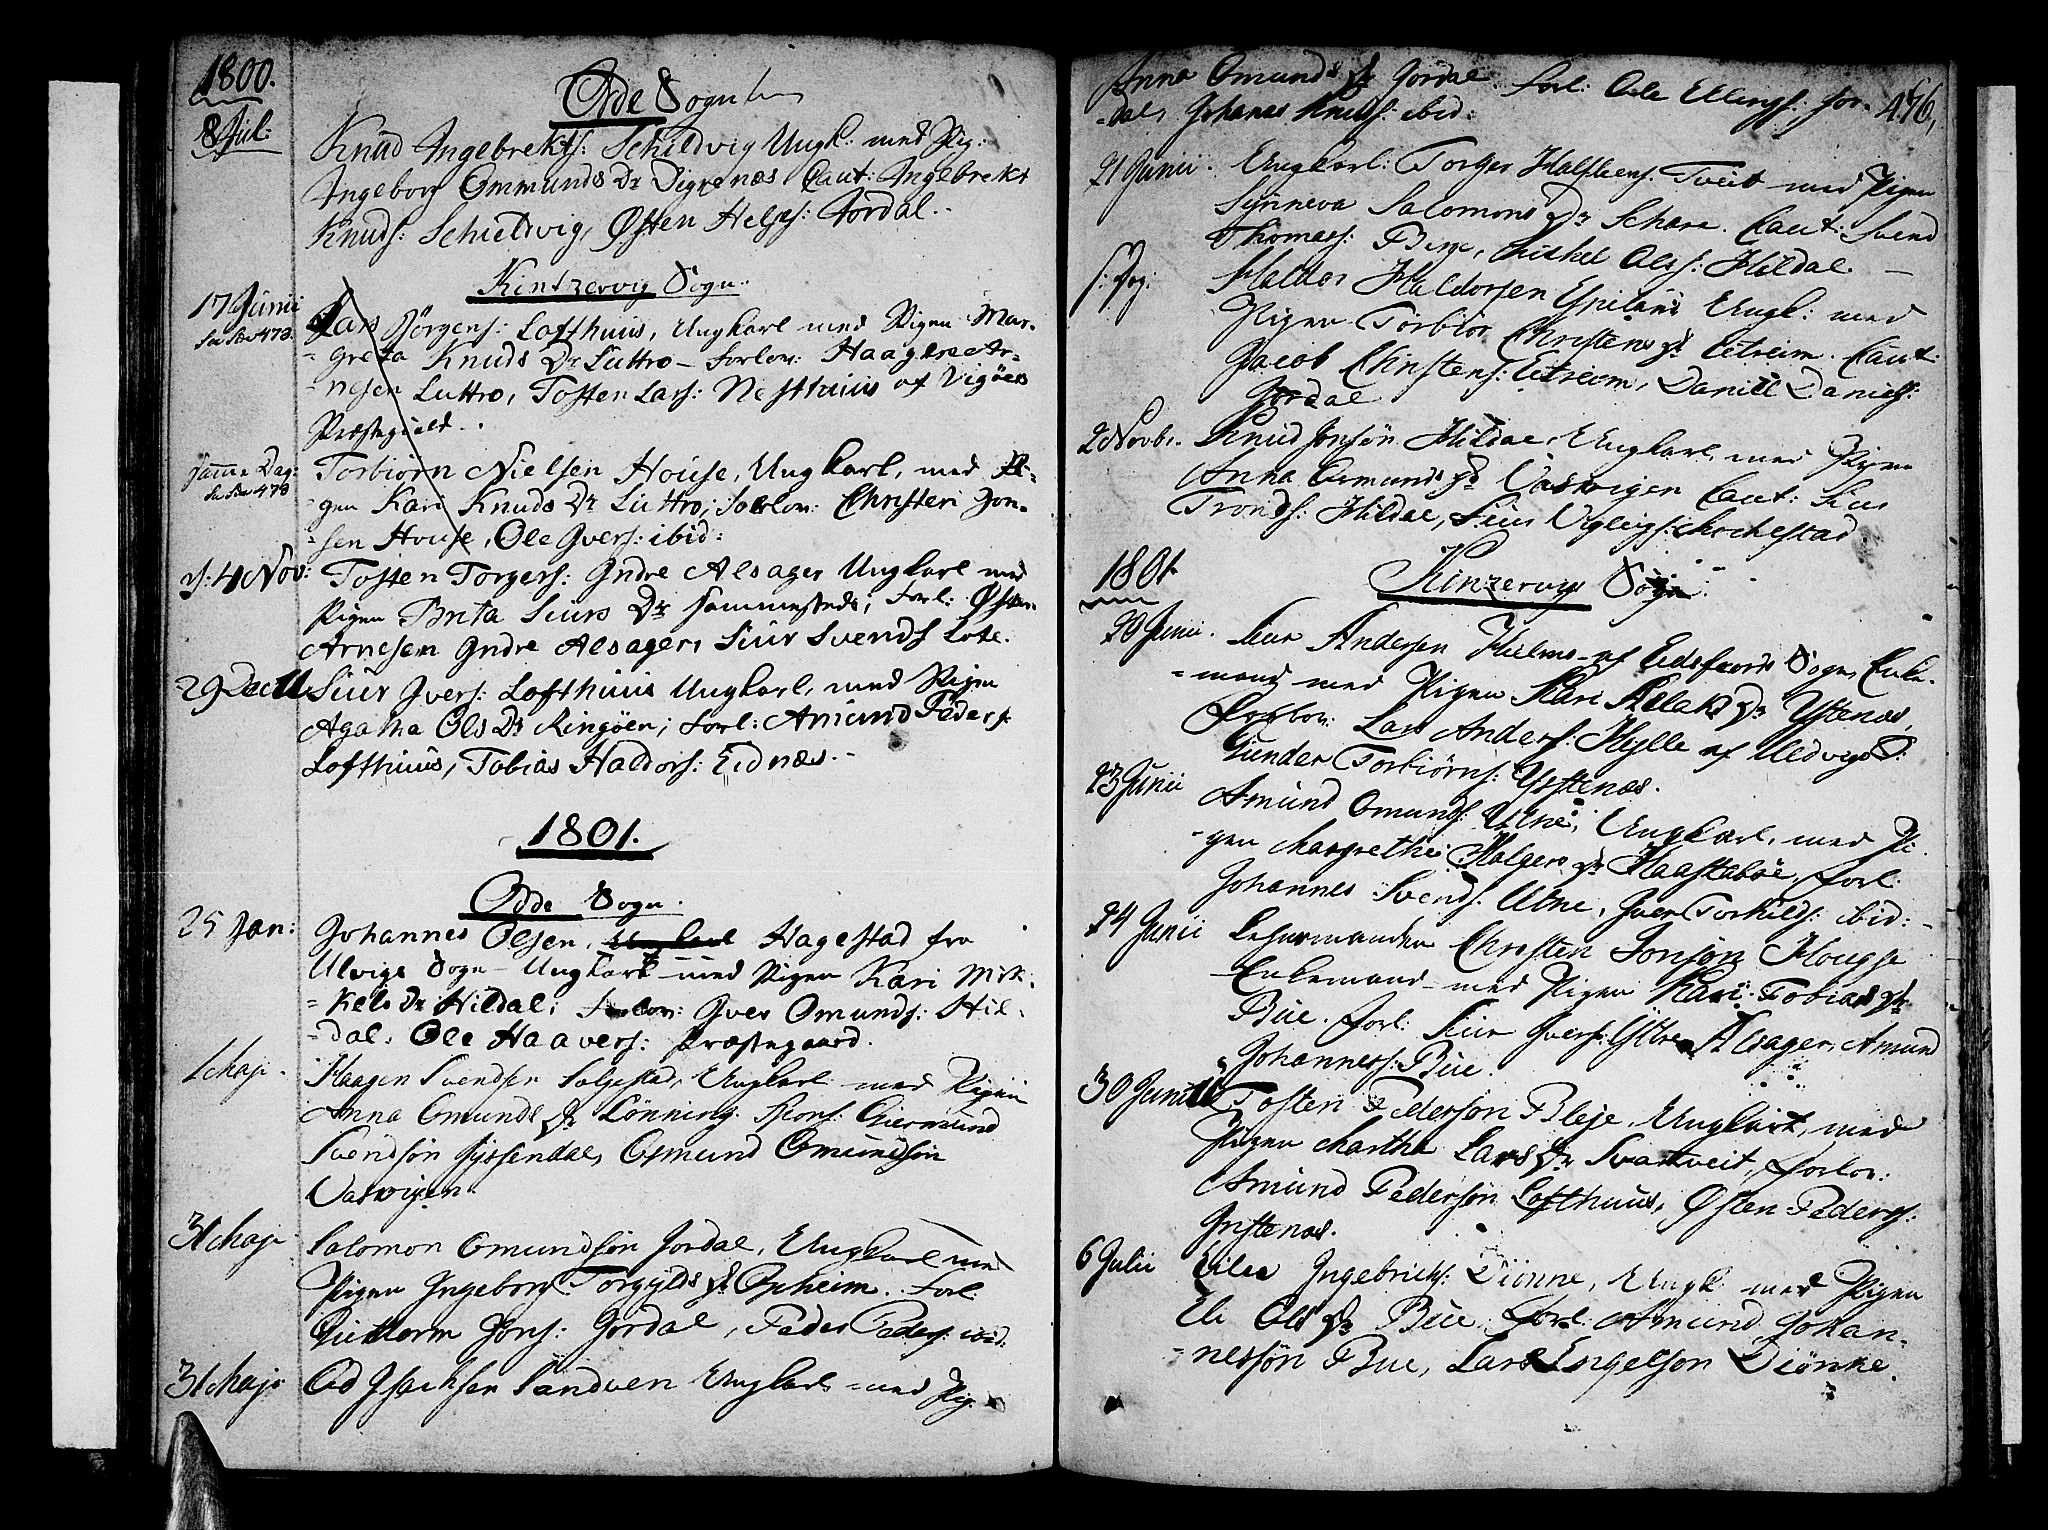 1800.
Odde Sogn
8 Jul:
Knud Ingebrekts: Schieldvig Ungk: med Pig:
Ingeborg Ommunds Dr Digrenæs Caut: Ingebrekt
Knuds: Schieldvig, Østen Helges: Jordal.
Kintzervig Sogn.
17 Junii
Lars Jörgens: Lofthuus, Ungkarl med Pigen Mar-
greta Knuds Dr Luttro - Forlov: Haagen Ar-
nesen Luttro, Tosten Lars: Nesthuus af Vigöers
Præstegield.
samme Dag:
Torbiørn Nielsen House, Ungkarl, med Pi-
gen Kari Knuds Dr Luttro; Forlov: Christen Jon-
sen House, Ole Ivers: ibid:
d: 4 Nov:
Tosten Torgers: Indre Alsager Ungkarl med
Pigen Brita Siurs Dr sammesteds, Forl: Østen
Arnesen Indre Alsager, Siur Svends Lote.
29 Dec
Siur Ivers: Lofthuus Ungkarl, med Pigen
Agatha Ols Dr Ringöen; Forl: Amund Peders:
Lofthuus, Tobias Haldors: Eidnæs.
1801.
Odde Sogn.
25 Jan:
Johannes Olsen, Ungkarl Hagestad fra
Ulvigs Sogn - Ungkarl med Pigen Kari Mik-
kels Dr Hildal; Forlov: Iver Omunds: Hil-
dal, Ole Haavers: Præstegaard.
1 Maji
Haagen Svendsen Solgestad, Ungkarl med Pigen
Anna Omunds Dr Lönning. Spons: Giermund
Svendsön Tyssendal, Osmund Omundsön
Vasvigen.
31 Maji
Salomon Omundsön Jordal, Ungkarl med
Pigen Ingeborg Torgylds Dr Opheim. Forl:
Guttorm Jons: Jordal, Peder Peders: ibid:
31 Maji
Od Isachsen Sandven Ungkarl med Pig.
476,
Anna Omunds Dr Jordal. Forl: Ole Ellings: Jor-
dal, Johanes Knuds: ibid:
21 Junii.
Ungkarl: Torger Halstens: Tveit med Pigen
Sunneva Salomons Dr Schare. Caut: Svend
Thomæs: Berge, Michel Ols: Hildal.
s: Dag:
Haldor Haldorsen Espeland Ungk: med
Pigen Torbior Christens Dr Eitreim. Caut:
Jacob Christens: Eitreim, Daniel Daniels:
Jordal
2 Novb.
Knud Jonsön Hildal, Ungkarl med Pigen
Anna Osmunds Dr Vasvigen Caut: Siur
Tronds: Hildal, Siur Vigleigs: Mochestad
1801
Kinzervigs Sogn.
20 Junii.
Siur Andersen Hielmo af Eidsfiords Sogn, Enke-
mand med Pigen Kari Aslaks Dr Ystenæs,
Forlov: Lars Anders: Hylle af Ulvigs S:
Gunder Torbiörns: Ystenæs.
23 Junii
Amund Omunds: Utne, Ungkarl, med Pi-
gen Margrethe Holgers Dr Haastabøe, Forl:
Johannes Svends: Utne, Iver Torkilds: ibid:
24 Junii
Lehnsmanden Christen Jonsön Hougse
Enkemand med Pigen Kari Tobias Dr
Büe. Forl: Siur Ivers: Ytre Alsager, Amund
Johanness: Büe.
30 Junii
Tosten Pedersön Bleje, Ungkarl, med
Pigen Martha Lars Dr Svartveit, Forlov:
Amund Pedersön Lofthuus, Østen Peders:
Instenæs.
6 Julii
Eilev Ingebricts: Diönne, Ungk. med Pigen
Eli Ols Dr Büe, Forl: Amund Johan-
nessøn Bue, Lars Engelson Diönne.